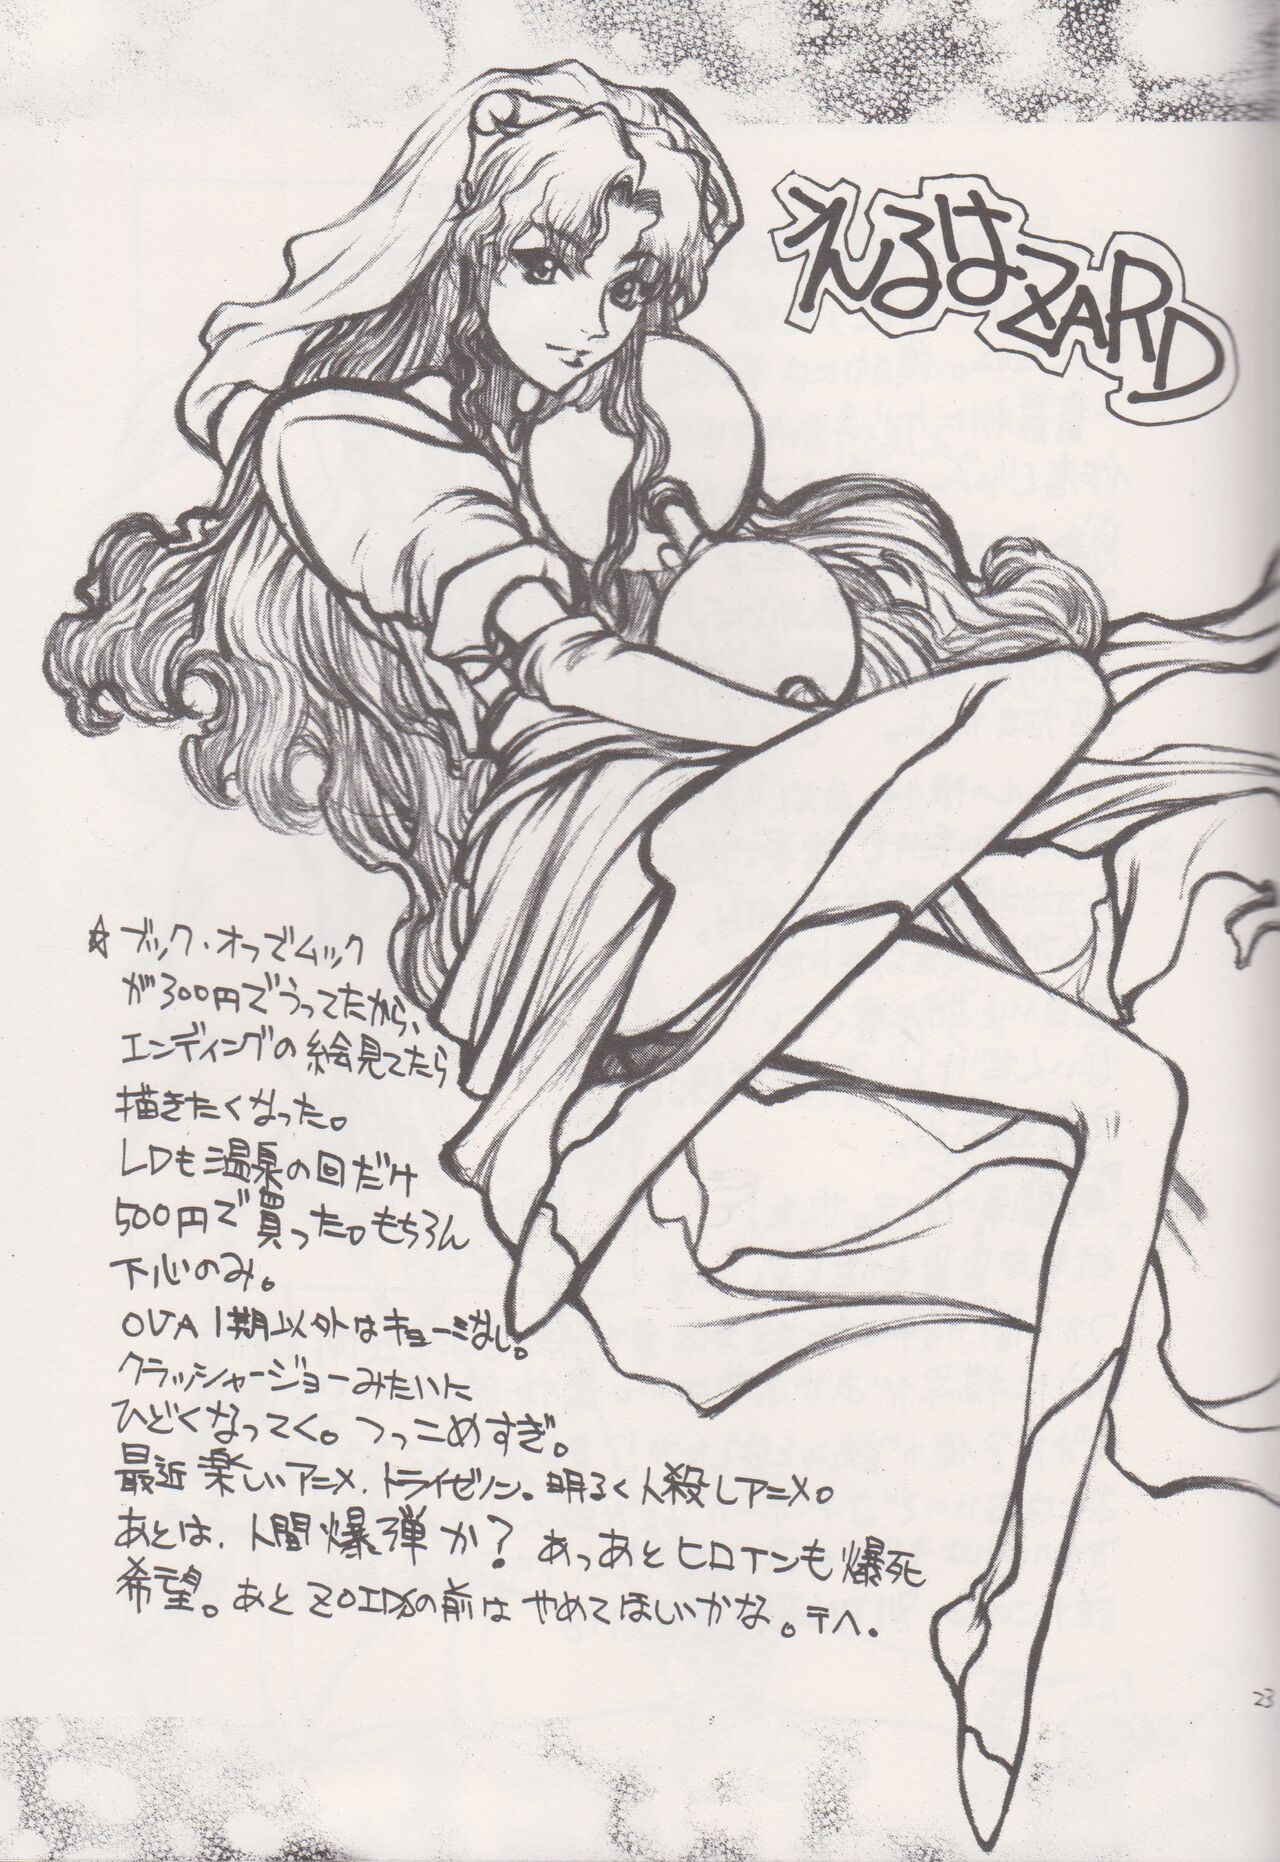 えるはZARD
☆ブック・オフでムック
が300円でうってたから、
エンディングの絵見てたら
描きたくなった。
LDも温泉の回だけ
500円で買った。もちろん
下心のみ。
OVA1期以外はキョーミなし。
クラッシャージョーみたいに
ひどくなってく。つっこめすぎ。
最近楽しいアニメ、トライゼノン。明るく人殺しアニメ。
あとは、人間爆弾か？あっあとヒロインも爆死
希望。あとZOIDSの前はやめてほしいかな。テヘ。
23